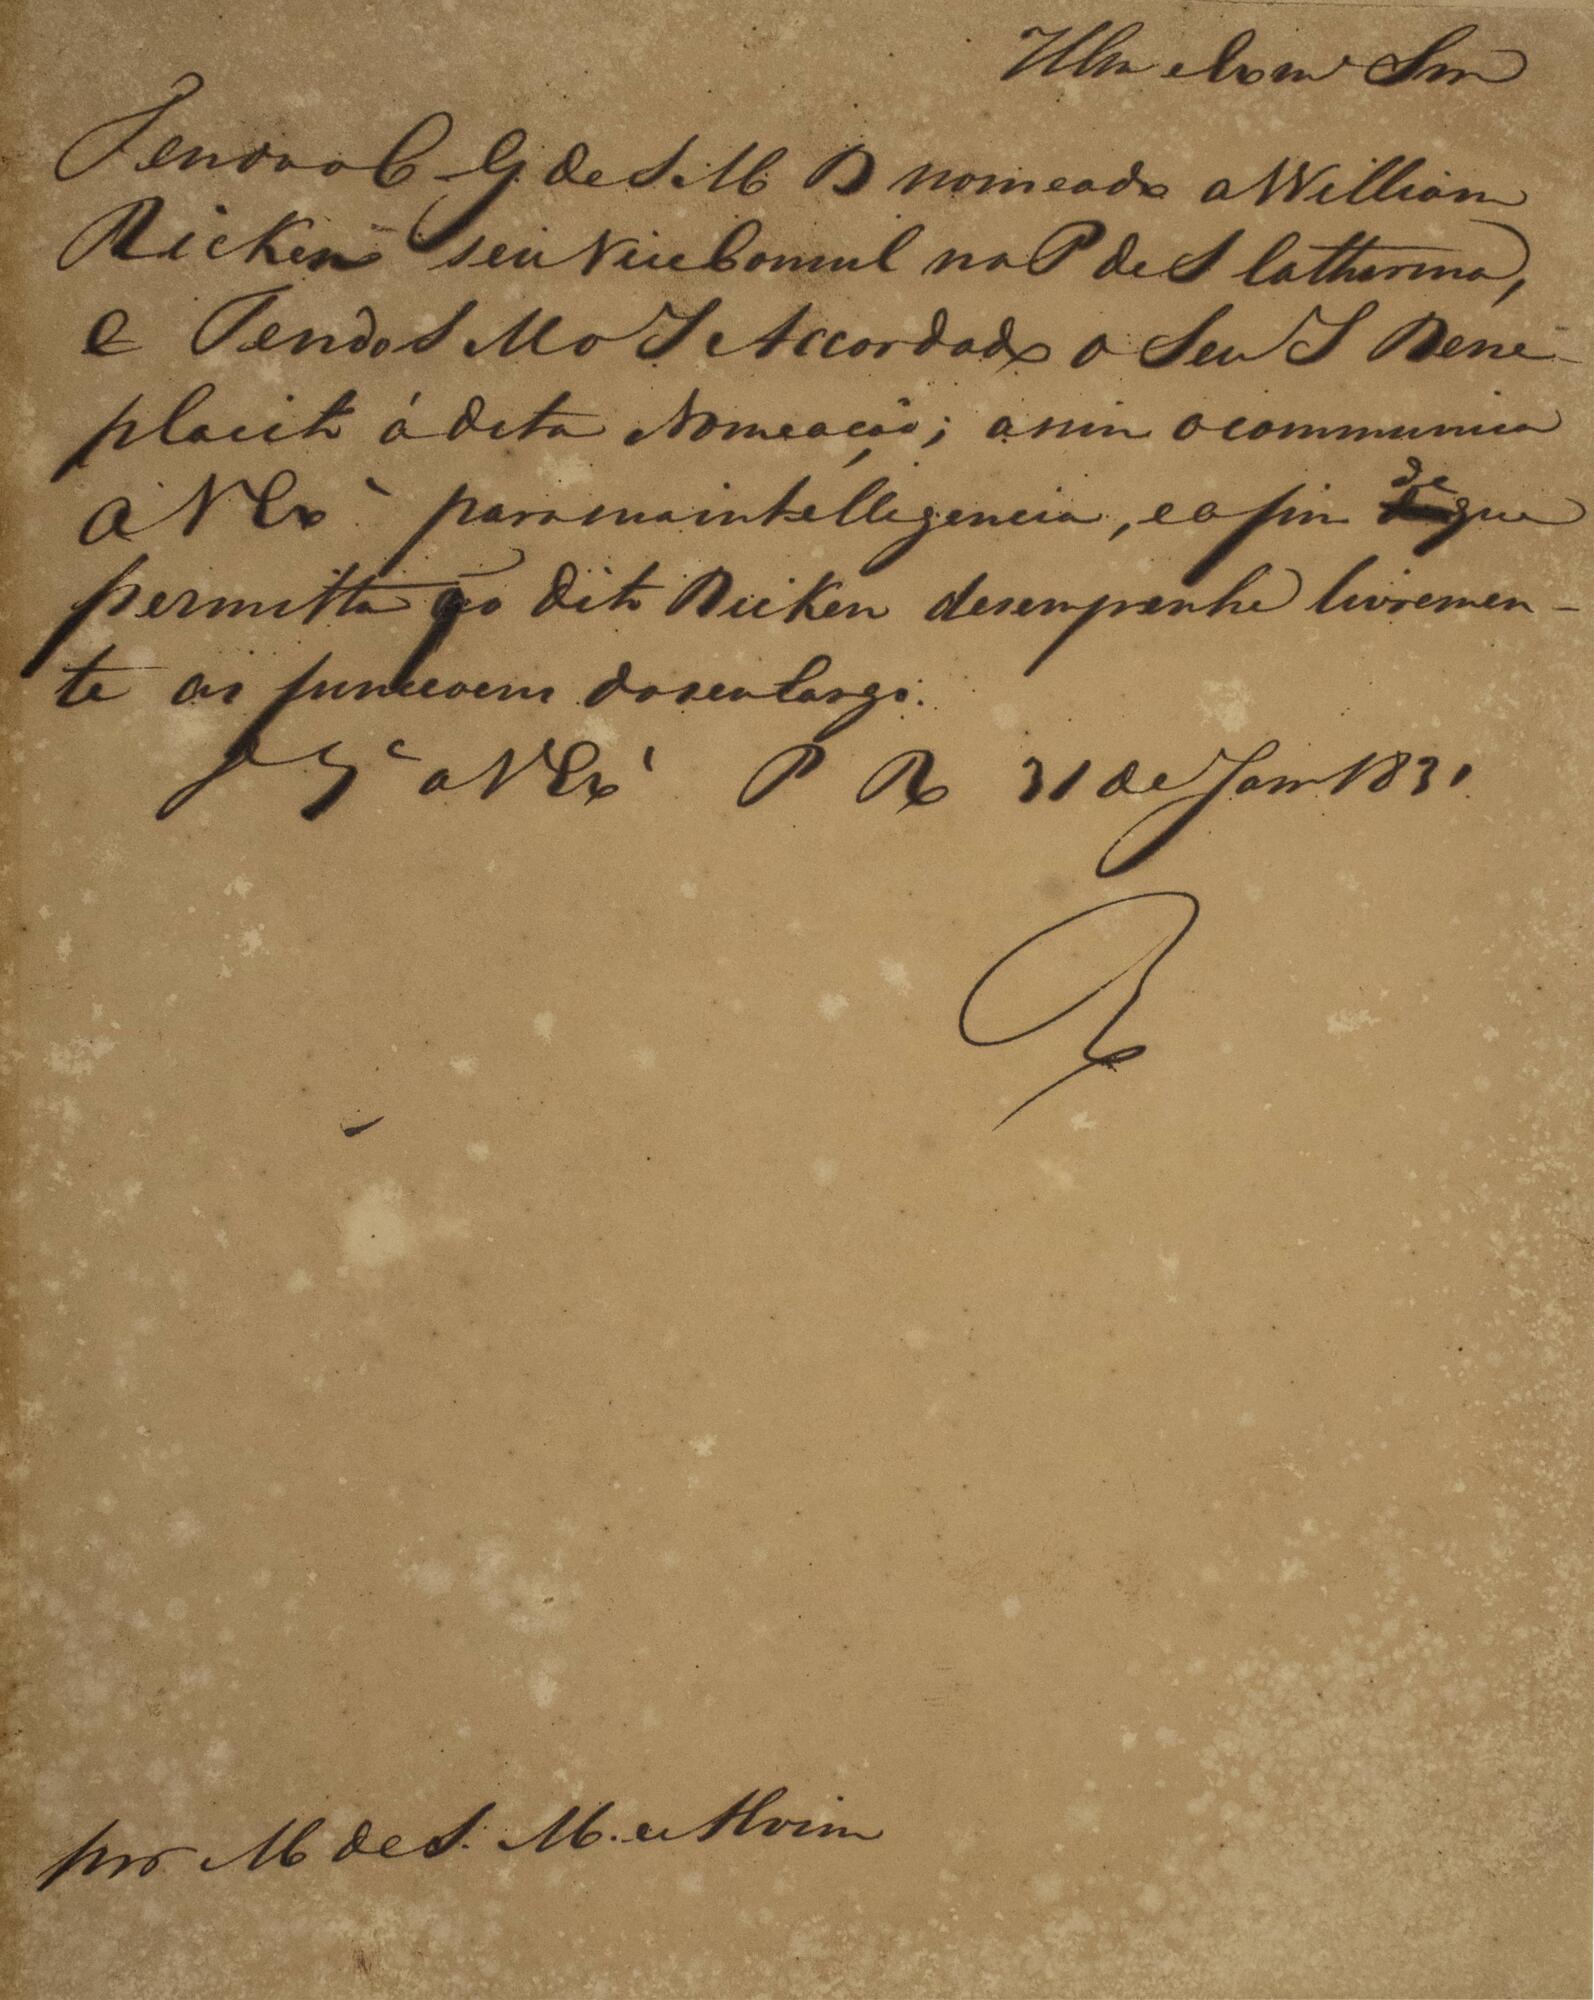 Illmo e Exmo Snr
Tendo o C G de S. M. B nomeado a William
Dicken seu Vice Consul na P de S Catherina,
e Tendo S M o I Accordado o Seu I Bene-
placito á dita Nomeação; assim o communico
a V Exa para sua intelligencia, e a fim de que
permitta qo dito Dicken desempenhe livremen-
te as funccoens do seu Cargo.
a V Exa P R 31 de Janro 1831
por M de S. M. e Alvim